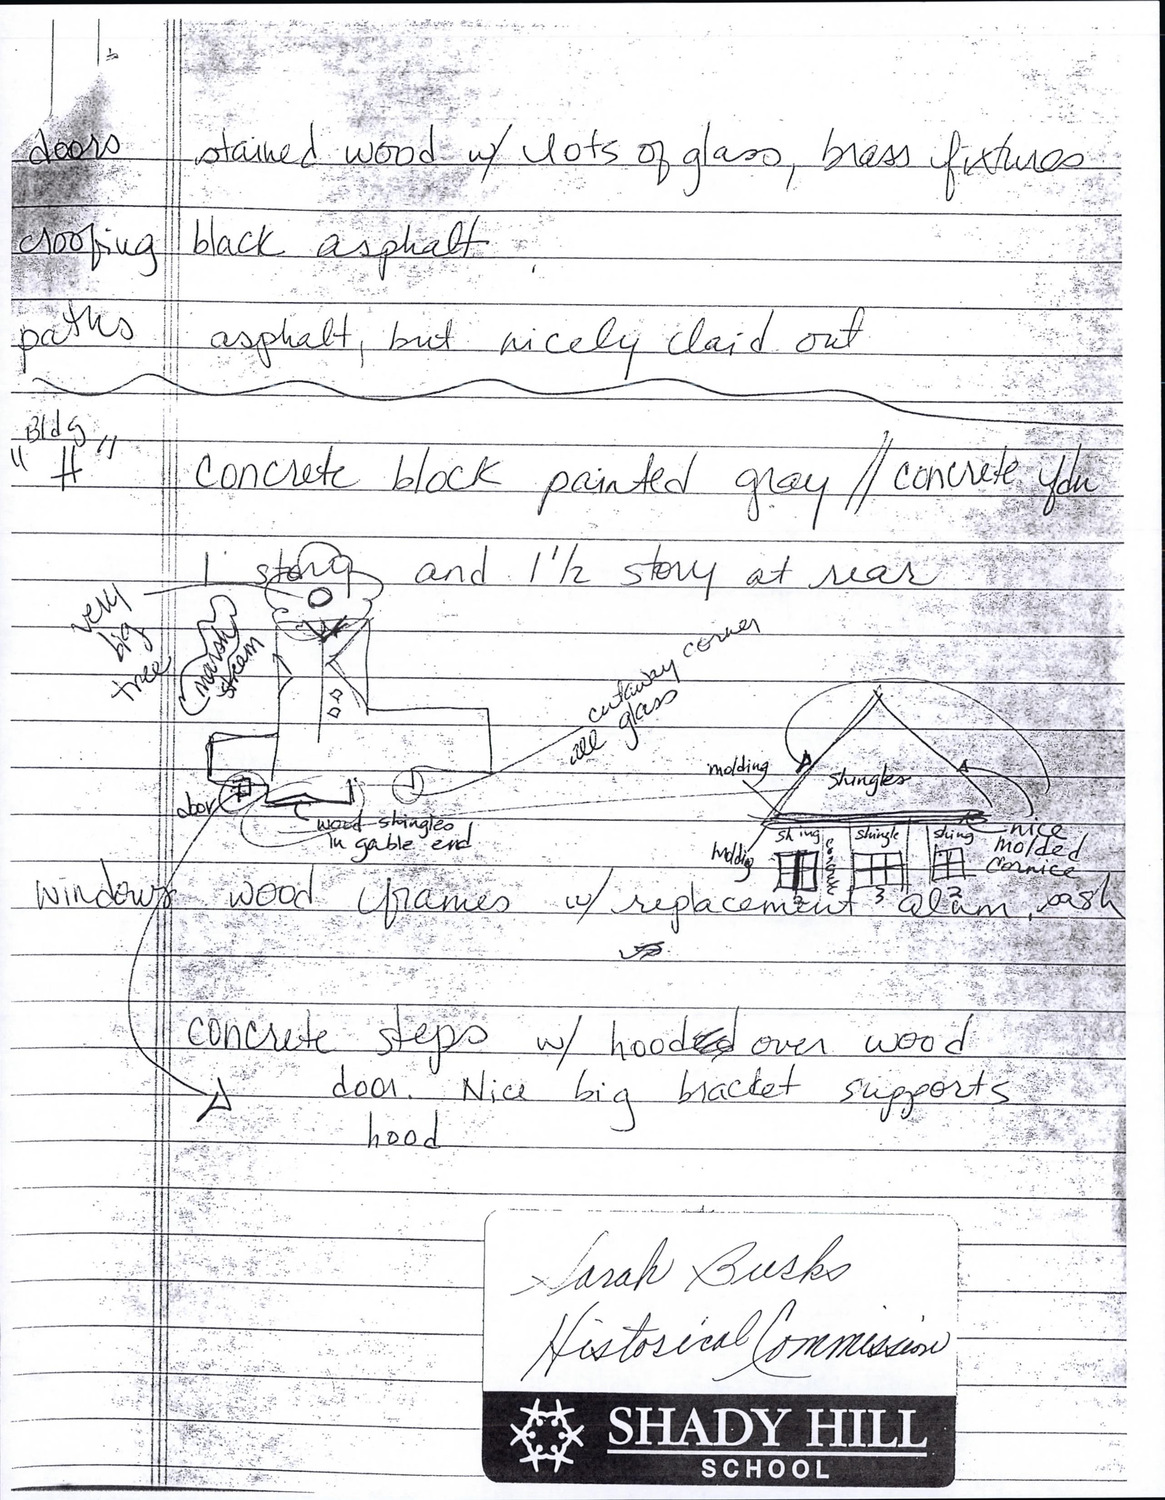 doors stained wood w/ lots of glass, brass fixtures
roofing black asphalt
paths asphalt, but nicely laid out
"Bldg H" concrete block painted gray // concrete fdn
1 story and 1 1/2 story at rear
very
big
tree
marsh
stream
cutaway corner
all glass
molding
shingles
door
wood shingles
in gable end
shing
shingle
shing
nice
molded
cornice
moldig
3
2
windows wood frames w/ replacement alum. sash
concrete steps w/ hood over wood
door. Nice big bracket supports
hood
Sarah Busks
Historical Commission
SHADY HILL
SCHOOL